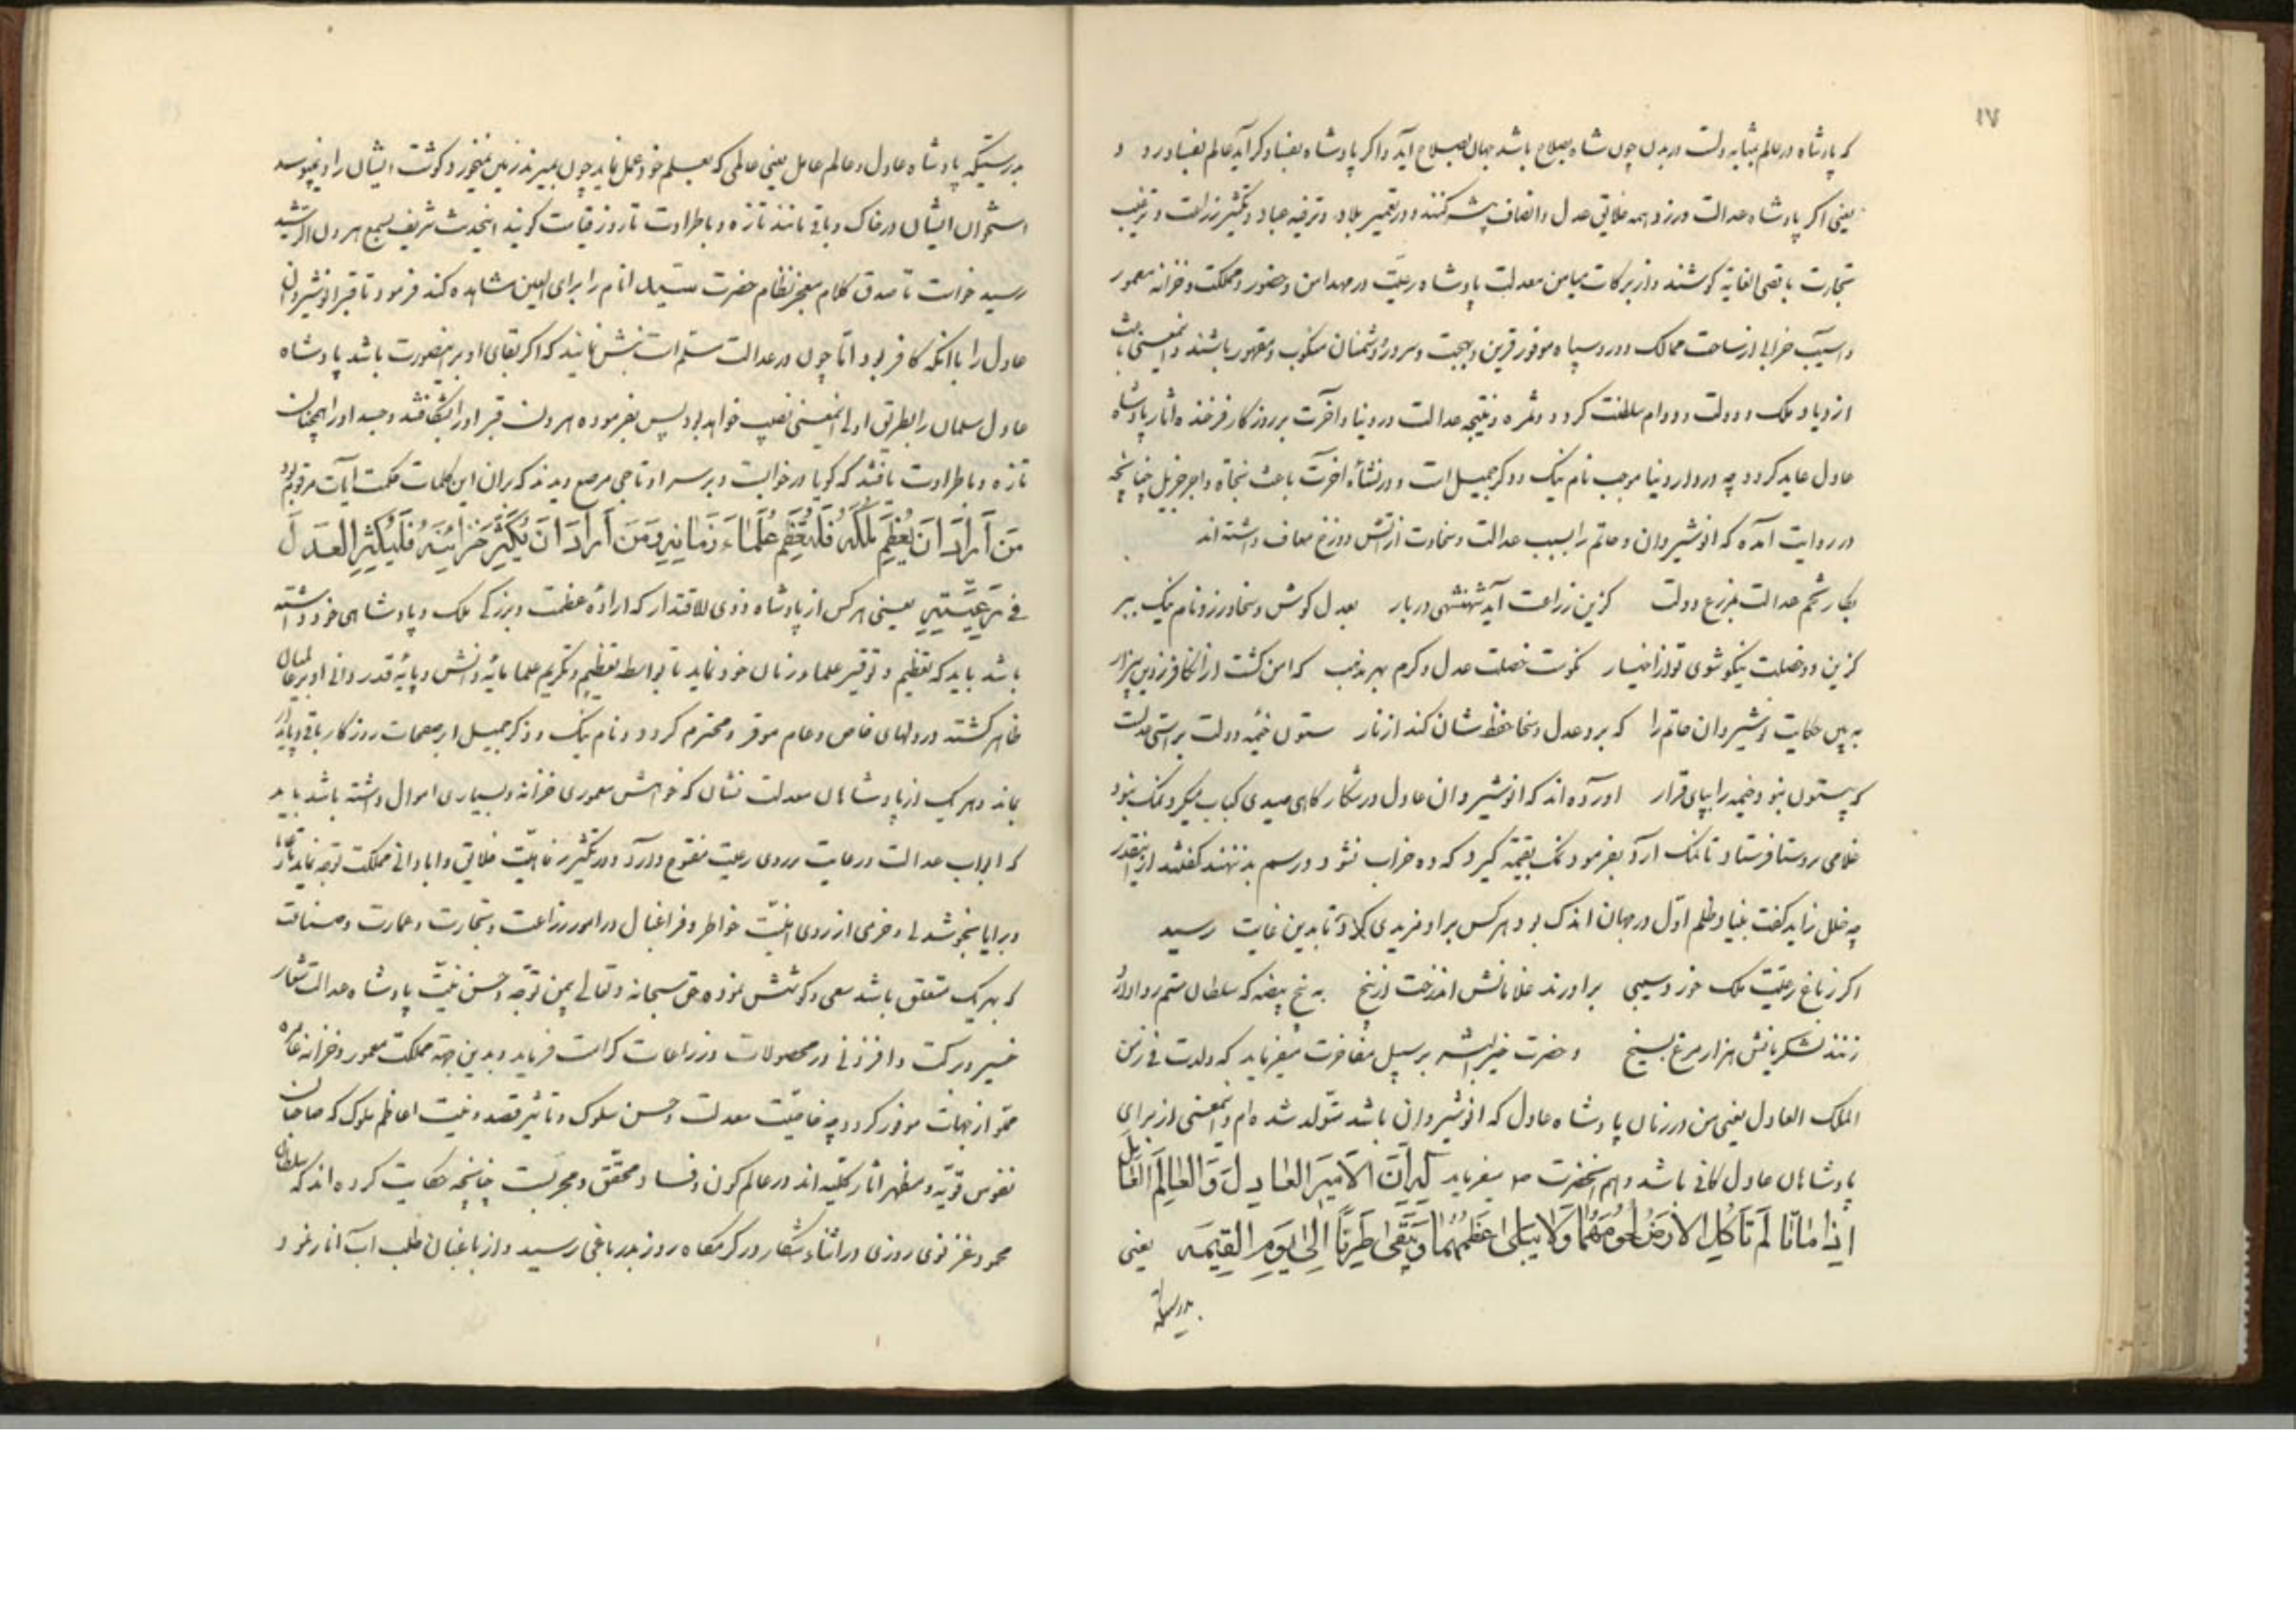 ۱۷
که پادشاه در عالم بمثابه دلست در بدن چون شاه بصلاح باشد جهان بصلاح آید و اگر پادشاه بفساد گراید عالم بفساد رود
یعنی اگر پادشاه عدالت ورزد همه خلایق عدل و انصاف پیشه کنند و در تعمیر بلاد و ترفیه عباد و تکثیر زراعت و ترغیب
تجارت باقصی الغایة کوشند و از برکات میامن معدلت پادشاه رعیّت در مهد امن و حضور و مملکت و خزانه معمور
و آسیب خرابی از ساحت ممالک دور و سپاه موفور قرین بهجت و سرور و دشمنان منکوب و مقهور باشند و اینمعنی باعث
ازدیاد ملک و دولت و دوام سلطنت گردد و ثمره و نتیجه عدالت در دنیا و آخرت بر روزگار فرخنده آثار پادشاه
عادل عاید گردد چه در دار دنیا موجب نام نیک و ذکر جمیل است و در نشأه آخرت باعث نجات و اجر جزیل چنانچه
در روایت آمده که انوشیروان و حاتم را بسبب عدالت و سخاوت از آتش دوزخ معاف داشته اند
بکار تخم عدالت بمزرع دولت کزین زراعت آید شهنشهی دربار بعدل کوش و سخا ورز و نام نیک ببر
کزین دو خصلت نیکو شوی تو از اخیار نکوست خصلت عدل و کرم بهر مذهب که امن گشت از آن کافر ز دین بیزار
به بین حکایت نوشیروان حاتم را که برد عدل و سخا حفظ شان کند از نار ستون خیمه دولت براستی عدلست
که بیستون نبود خیمه را بپای قرار آورده اند که انوشیروان عادل در شکارگاهی صیدی کباب میکرد نمک نبود
غلامی بروستا فرستاد تا نمک آرد بفرمود نمک بقیمة گیرد که ده خراب نشود و رسم بد ننهند گفتند ازینقدر
چه خلل زاید گفت بنیاد ظلم اوّل در جهان اندک بود هر کس بر او مزیدی کرد تا بدین غایت رسید
اگر ز باغ رعیّت ملک خورد سیبی برآورند غلامانش از درخت از بیخ به پنج بیضه که سلطان ستم روا دارد
زنند لشکریانش هزار مرغ بسیخ و حضرت خیر البشر بر سبیل مفاخرت میفرماید که ولدت فی زمن
الملک العادل یعنی من در زمان پادشاه عادل که انوشیروان باشد متولد شده ام و اینمعنی از برای
پادشاهان عادل کافی باشد و هم آنحضرت ص میفرماید اِنَّ الاَمیرَ العادِلَ وَ العالِمَ العامِلَ
اِذا ماتا لَم تَأکُلِ الاَرضُ لُحُومَهُما وَلا یَبلی عَظمُهُما وَیَبقی طَرِیّاً اِلی یَومِ القِیمَه یعنی
بدرستیکه
بدرستیکه پادشاه عادل و عالم عامل یعنی عالمی که بعلم خود عمل نماید چون بمیرند زمین نمیخورد گوشت ایشان را و نپوسد
استخوان ایشان در خاک و باقی مانند تازه و باطراوت تا روز قیامت گویند اینحدیث شریف بسمع هرون الرشید
رسید خواست تا صدق کلام معجز نظام حضرت سیّد انام را برای العین مشاهده کند فرمود تا قبر انوشیروان
عادل را باآنکه کافر بود امّا چون در عدالت مسلّم است نبش نمایند که اگر بقای او بر اینصورت باشد پادشاه
عادل مسلمان را بطریق اولی اینمعنی نصیب خواهد بود پس بفرموده هرون قبر او را بشکافتند و جسد او را همچنان
تازه و باطراوت یافتند که گویا در خوابست و بر سر او تاجی مرصع دیدند که بر آن این کلمات حکمت آیات مرقوم بود
مَن اَرادَ اَن یُعَظِّمَ مُلکَهُ فَلیُعَظِّم عُلَماءَ زَمانِهِ وَمَن اَرادَ اَن یُکَثِّرَ خَزائِنَهُ فَلیُکثِرِ العَدلَ
فی رَعِیَّتِهِ یعنی هر کس از پادشاه ذوی الاقتدار که اراده عظمت و بزرگی ملک و پادشاهی خود داشته
باشد باید که تعظیم و توقیر علماء زمان خود نماید تا بواسطه تعظیم و تکریم علما پایهٔ دانش و پایهٔ قدردانی او بر عالمیان
ظاهر گشته در دلهای خاص و عام موقر و محترم گردد و نام نیک و ذکر جمیل او بر صفحات روزگار باقی و پایدار
بماند و هر یک از پادشاهان معدلت نشان که خواهش معموری خزانه و بسیاری اموال داشته باشد باید
که ابواب عدالت و رعایت بر روی رعیت مفتوح دارد و در تکثیر رفاهیّت خلایق و آبادانی مملکت توجه نماید تا رعایا
و برایا بخوشدلی و خرمی از روی امنیّت خواطر و فراغبال در امور زراعت و تجارت و عمارت و صناعت
که بهر یک متعلق باشد سعی و کوشش نموده حق سبحانه و تعالی بیمن توجّه و حسن نیّت پادشاه عدالت شعار
خیر و برکت و افزونی در محصولات و زراعات کرامت فرماید و بدین جهة مملکت معمور و خزانه عامره
از جهات موفور گردد چه خاصیّت معدلت و حسن سلوک و تأثیر قصد و نیّت اعاظم ملوک که صاحبان
نفوس قویّه و مظهر آثار کلّیه اند در عالم کون و فساد محقّق و مجرّبست چنانچه حکایت کرده اند که سلطان
محمود غزنوی روزی در اثناء شکار در گرمگاه روز بدر باغی رسید و از باغبان طلب آب انار نمود